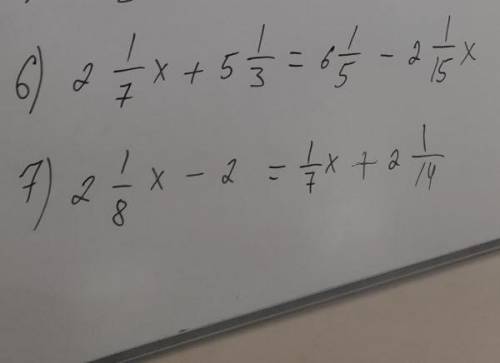 6) 2 1/7 x + 5 1/3 = 6 1/5 - 2 1/15 x
7) 2 1/8 x - 2 = 1/7 x + 2 1/14